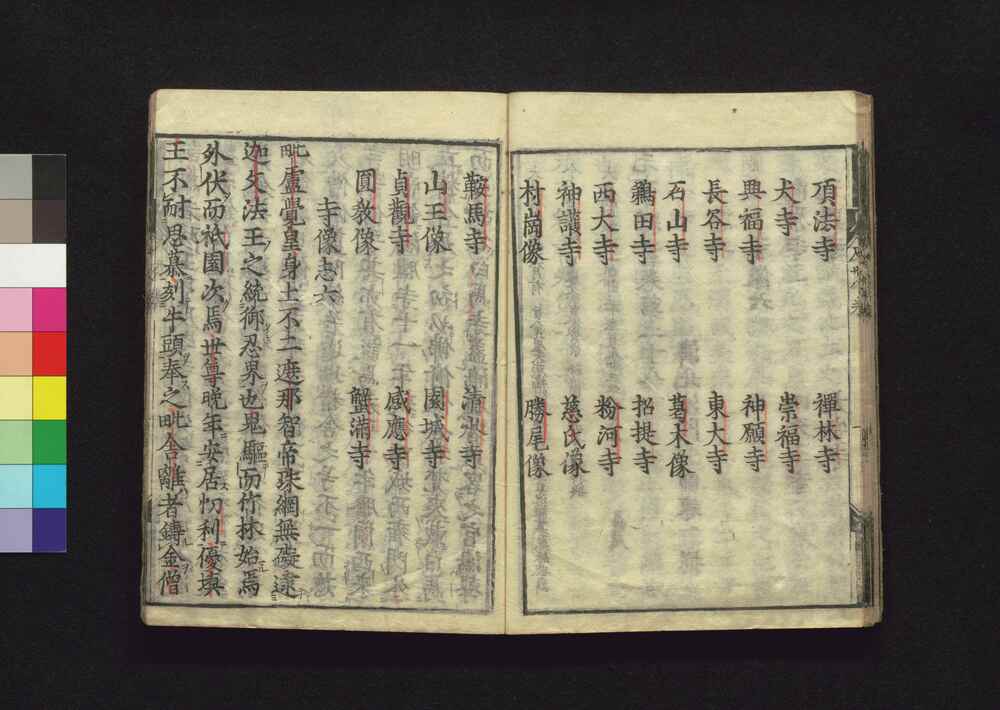 項法寺 禪林寺
犬寺 崇福寺
興福寺 神願寺
長谷寺 東大寺
石山寺 葛木像
鵜田寺 招提寺
西大寺 粉河寺
神護寺 慈氏像
村崗像 勝尾像
鞍馬寺 清水寺
山王像 園城寺
貞觀寺 感應寺
圓教像 蟹滿寺
寺像志六
毗盧覺皇身土不二遮那智帝珠網無礙逮
迦文法王之統御忍界也鬼驅而竹林始焉
外伏而祇園次焉世尊晚年安居忉利優塡
王不耐思慕刻牛頭奉之毗舍離者鑄金僧